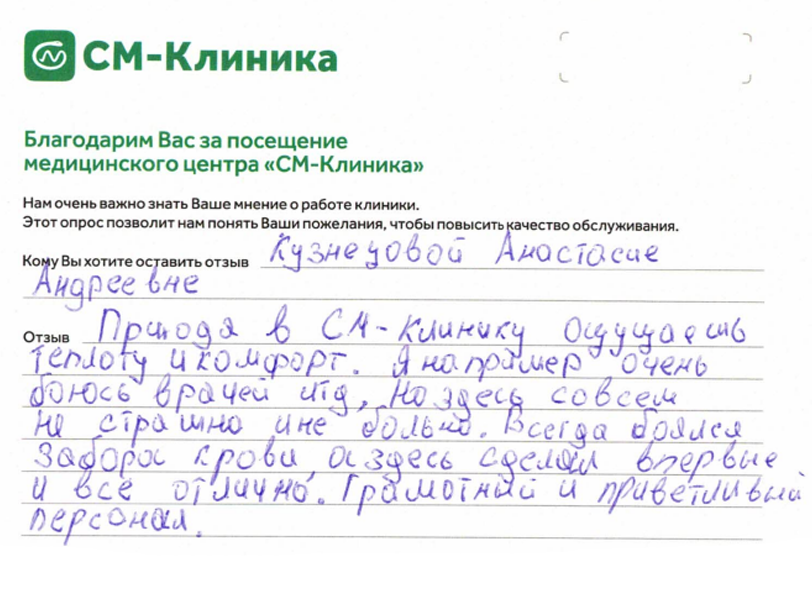 СМ-Клиника
Благодарим Вас за посещение
медицинского центра «СМ-Клиника»
Нам очень важно знать Ваше мнение о работе клиники.
Этот опрос позволит нам понять Ваши пожелания, чтобы повысить качество обслуживания.
Кому Вы хотите оставить отзыв Кузнецовой Анастасие
Андреевне
Отзыв Приходя в СМ-Клинику ощущаешь
теплоту и комфорт. Я например очень
боюсь врачей итд, но здесь совсем
не страшно и не больно. Всегда боялся
забора крови, а здесь сделал впервые
и все отлично. Грамотный и приветливый
персонал.